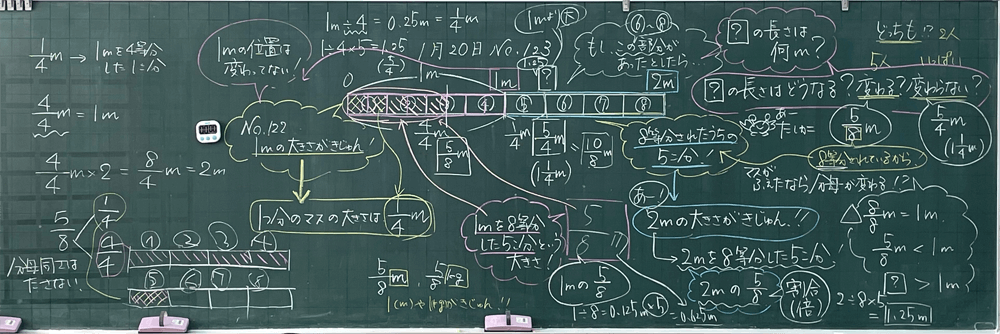 1/4 m → 1mを4等分
した1こ分
4/4 m = 1m
4/4 m × 2 = 8/4 m = 2m
5/8
1/4
4/4
分母同士は
たさない
① ② ③ 4
⑤ ⑥ ⑦ ⑧
1mの位置は
変わってない!
1m÷4 = 0.25m = 1/4 m
1÷4×5=1.25
(5/4)
1月20日 No.123
0
1m
1m
?
2m
① ② ③ ④ ⑤ ⑥ ⑦ ⑧
No.122
1mの大きさがきじゅん!
1つ分のマスの大きさは 1/4 m
4/4 m
5/8 m
1 1/4 m
5/4 m
(1 1/4 m)
= 10/8 m
1mより大
⑥〜⑧
もし、この部分が
あったとしたら…
? の長さは
何m?
? の長さはどうなる?変わる?変わらない?
どっちも? 2人
5人
5/8 m
5/4 m
(1 1/4 m)
8等分されたうちの
5こ分!
8等分されているから!
マスが
ふえたなら分母が変わる!?
あー!
2mの大きさがきじゅん!!
2mを8等分した5こ分!
2mの 5/8
割合
(倍)
1mを8等分
した5こ分という
大きさ!
5/8
1mの 5/8
1÷8=0.125(×5)=0.625m
5/8 m や 5/8 kg
1(m)や1kgがきじゅん!!
△ 8/8 m = 1m
5/8 m < 1m
? > 1m
2÷8×5
= 1.25m